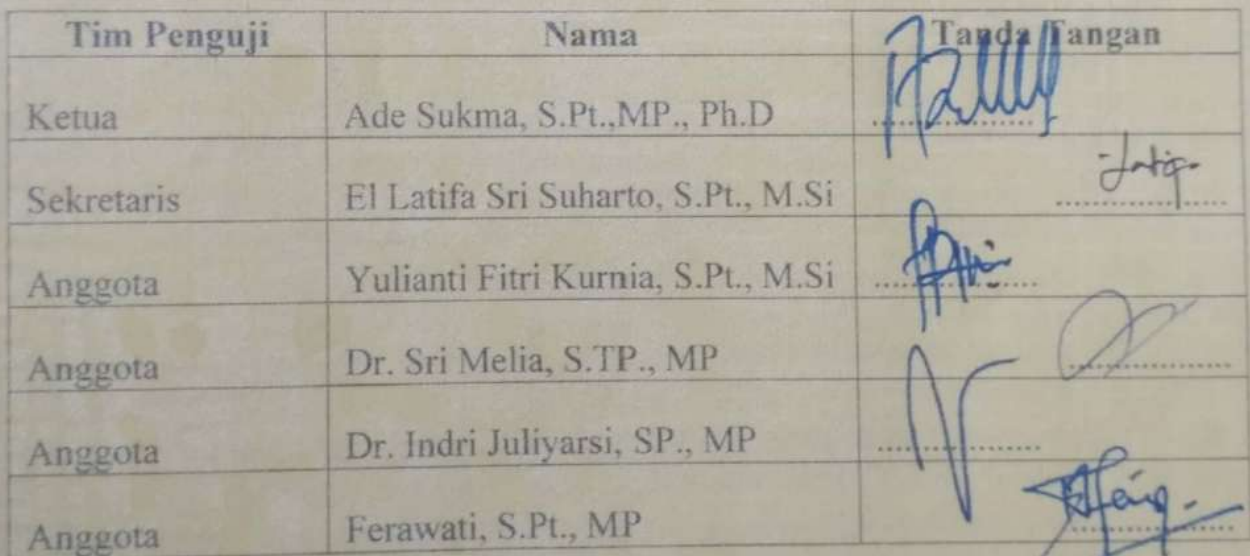 Tim Penguji Nama Tanda Tangan
Ketua Ade Sukma, S.Pt.,MP., Ph.D
Sekretaris El Latifa Sri Suharto, S.Pt., M.Si
Anggota Yulianti Fitri Kurnia, S.Pt., M.Si
Anggota Dr. Sri Melia, S.TP., MP
Anggota Dr. Indri Juliyarsi, SP., MP
Anggota Ferawati, S.Pt., MP